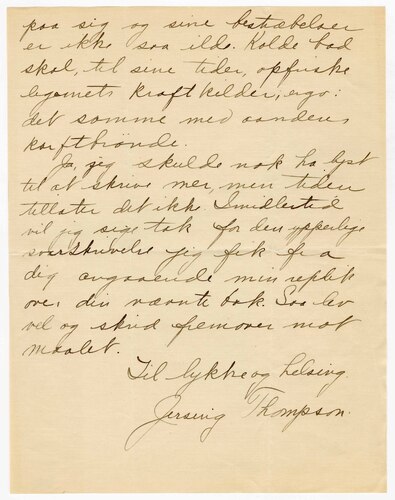 paa sig og sine bestræbelser
er ikke saa ilde. Kolde bad
skal, til sine tider, opfriske
legemets kraftkilder, ergo:
det samme med aandens
karftbrønde.
Ja, jeg skulde nok ha lyst
til at skrive mer, men tiden
tillater det ikke. Imidlertid
vil jeg sige tak for den ypperlige
svarskrivelse jeg fik fra
dig angaaende min replik
over din nævnte bok. Saa lev
vel og skrid fremover mot
maalet.
Til lykke og helsing.
Jersing Thompson.